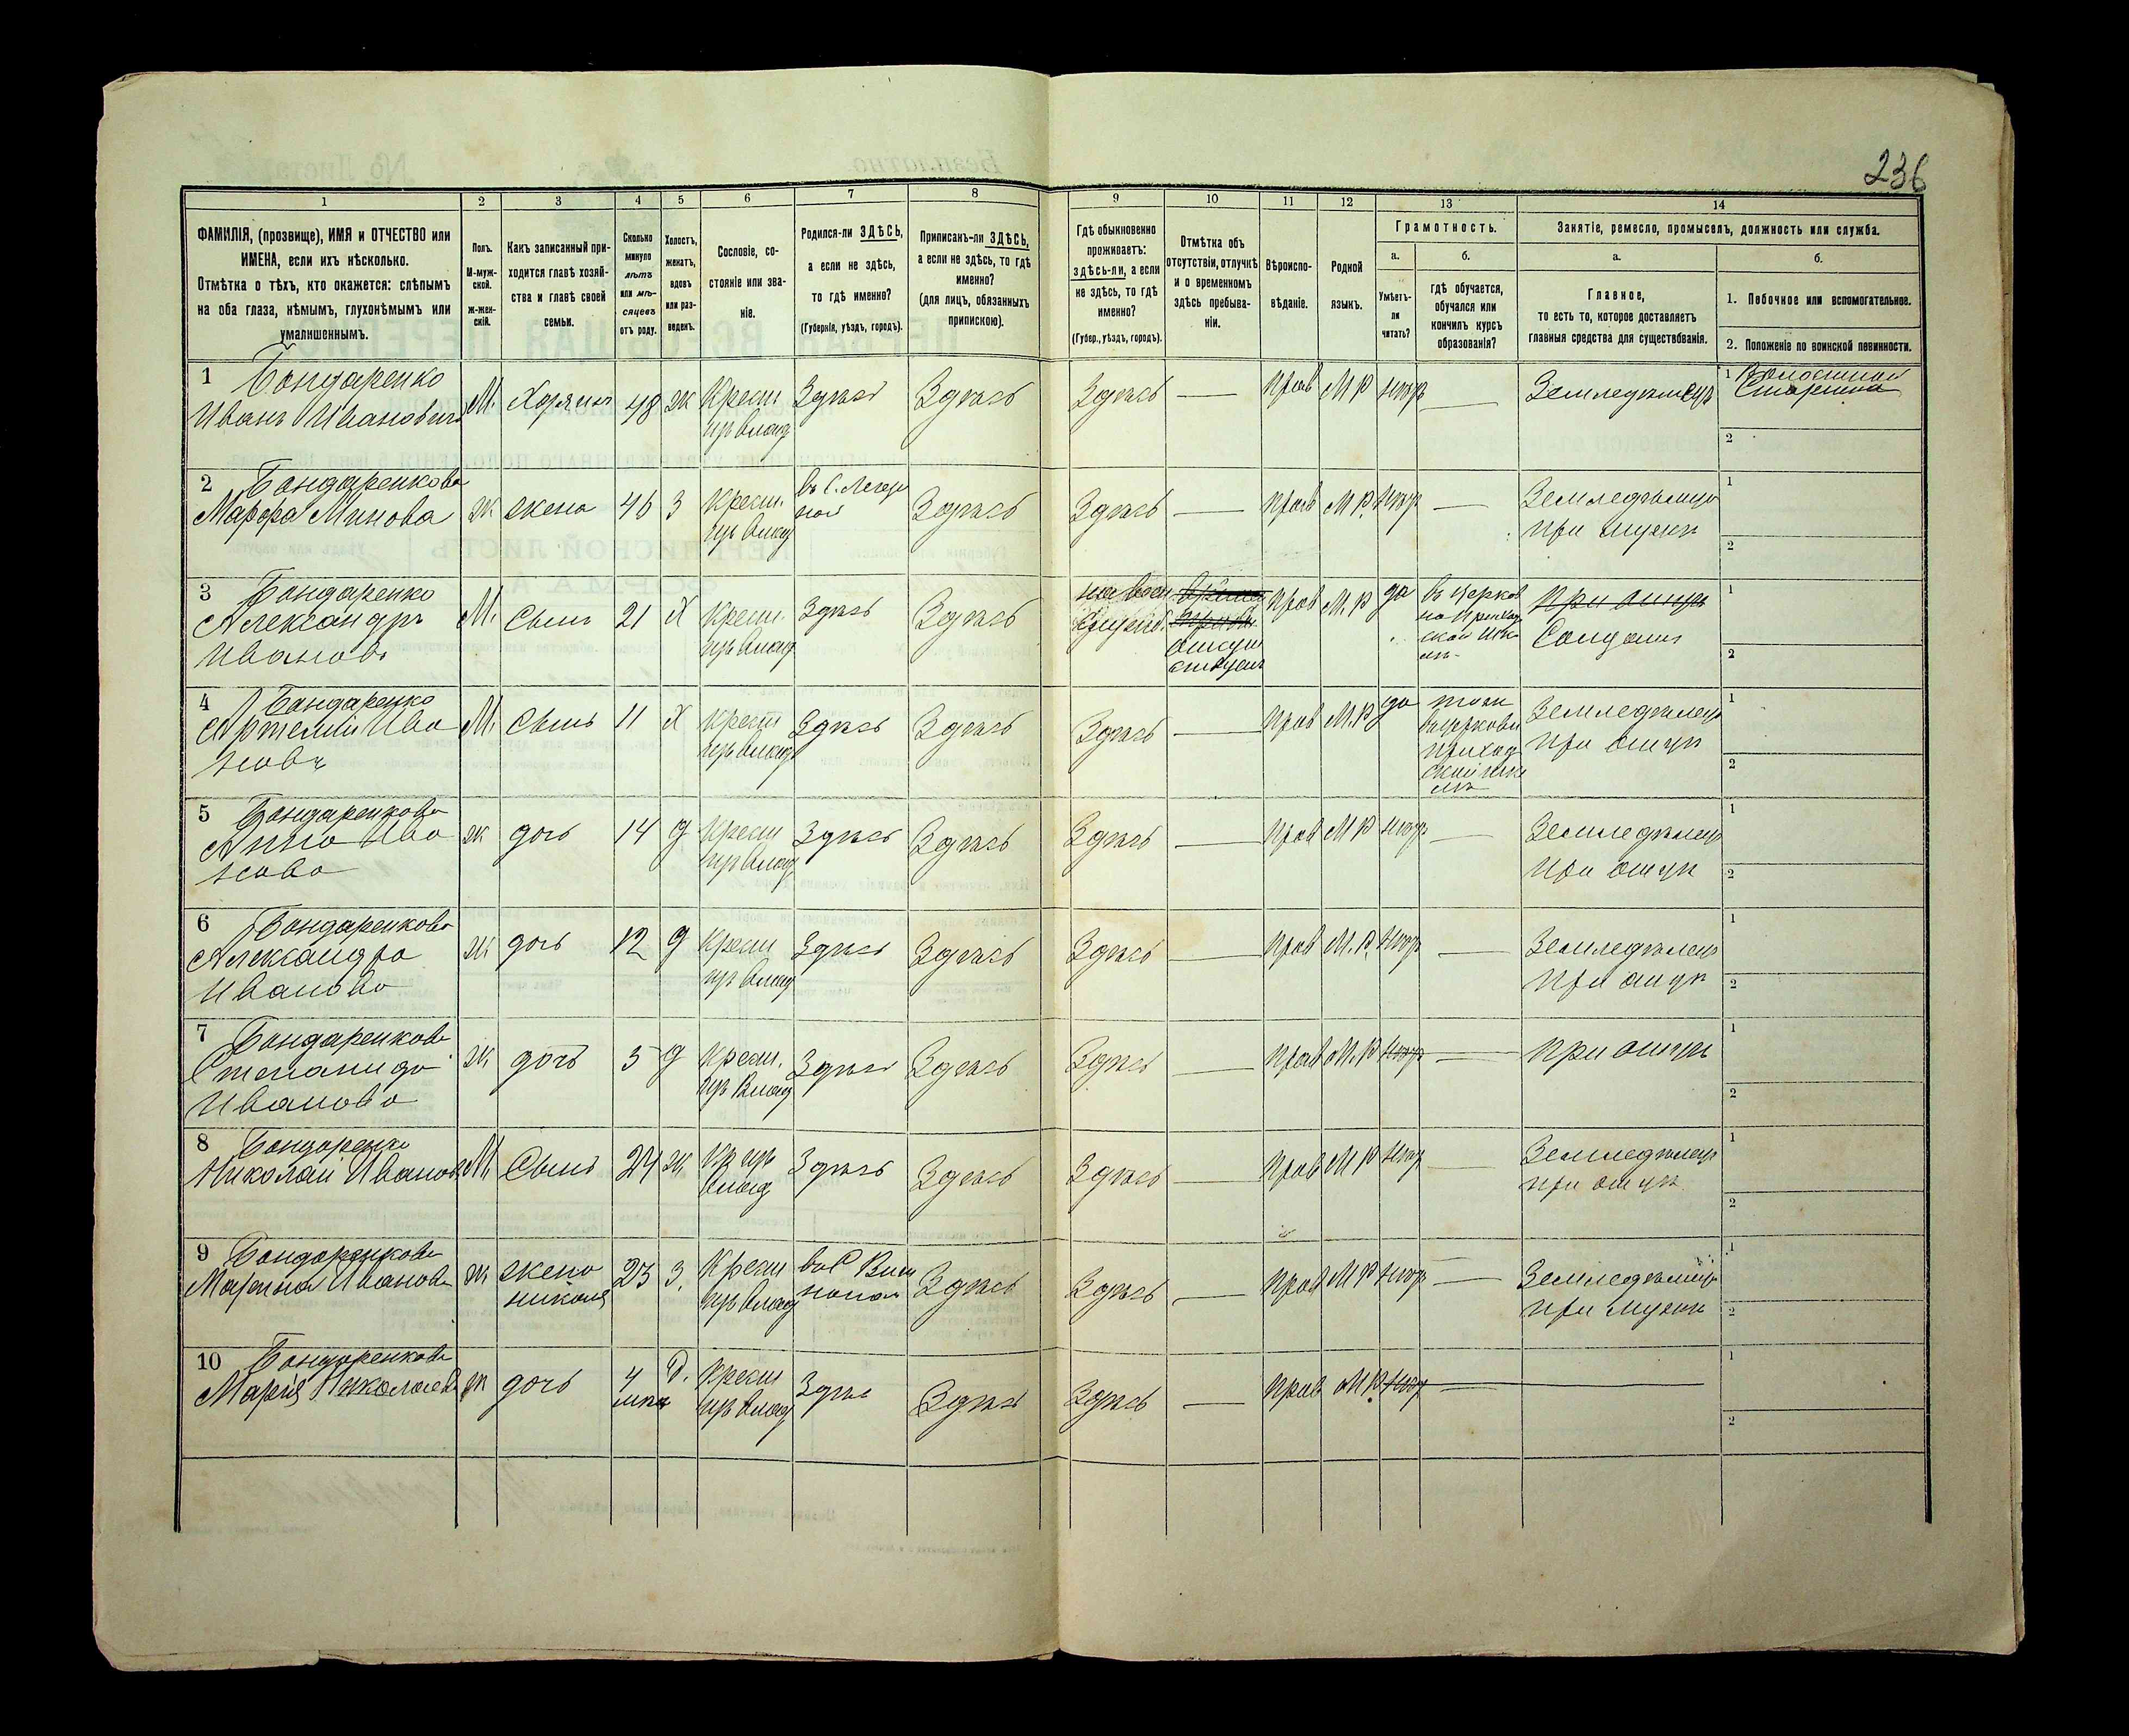 236
1
2
3
4
5
6
7
8
9
10
11
12
13
14
ФАМИЛІЯ, (прозвище), ИМЯ и ОТЧЕСТВО или
ИМЕНА, если ихъ нѣсколько.
Отмѣтка о тѣхъ, кто окажется: слѣпымъ
на оба глаза, нѣмымъ, глухонѣмымъ или
умалишеннымъ.
Полъ.
М-муж-
ской.
ж-жен-
скій.
Какъ записанный при-
ходится главѣ хозяй-
ства и главѣ своей
семьи.
Сколько
минуло
лѣтъ
или мѣ-
сяцевъ
отъ роду.
Холостъ,
женатъ,
вдовъ
или раз-
веденъ.
Сословіе, со-
стояніе или зва-
ніе.
Родился-ли ЗДѢСЬ,
а если не здѣсь,
то гдѣ именно?
(Губернія, уѣздъ, городъ).
Приписанъ-ли ЗДѢСЬ,
а если не здѣсь, то гдѣ
именно?
(для лицъ, обязанныхъ
припискою).
Гдѣ обыкновенно
проживаетъ:
здѣсь-ли, а если
не здѣсь, то гдѣ
именно?
(Губер., уѣздъ, городъ).
Отмѣтка объ
отсутствіи, отлучкѣ
и о временномъ
здѣсь пребыва-
ніи.
Вѣроиспо-
вѣданіе.
Родной
языкъ.
Грамотность.
а.
Умѣетъ-
ли
читать?
б.
гдѣ обучается,
обучался или
кончилъ курсъ
образованія?
Занятіе, ремесло, промыселъ, должность или служба.
а.
Главное,
то есть то, которое доставляетъ
главныя средства для существованія.
б.
1. Побочное или вспомогательное.
2. Положеніе по воинской повинности.
1 Бондаренко
Иванъ Ивановичъ
М.
Хозяинъ
48
Ж
Крест
изъ Влад
Здѣсь
Здѣсь
Здѣсь
Прав
М Р
Нѣтъ
Земледѣлецъ
1 Волостной
Старшина
2
2 Бондаренкова
Марфа Минова
Ж
жена
46
З
Крест.
изъ Влад
Здѣсь
Здѣсь
Прав
М Р.
Нѣтъ
Земледѣлица
при мужѣ
1
2
3 Бондаренко
Александръ
Ивановъ
М.
Сынъ
21
Х
Крест.
изъ Влад
Здѣсь
Здѣсь
на воен
Прав
М. Р
да
въ Церков
но Приход
ской шко
лѣ
при отцѣ
Солдатъ
1
2
4 Бондаренко
Артемій Ива
новъ
М.
Сынъ
11
Х
Крест
изъ Влад
Здѣсь
Здѣсь
Здѣсь
Прав
М. Р
да
въ церковн
приход
ской шко
лѣ
Земледѣлецъ
при отцѣ
1
2
5 Бондаренкова
Анна Ива
нова
Ж
дочь
14
Д
Крест
изъ Влад
Здѣсь
Здѣсь
Здѣсь
Прав
М Р
Нѣтъ
Земледѣлецъ
при отцѣ
1
2
6 Бондаренкова
Александра
Иванова
Ж
дочь
12
Д
Крест
изъ Влад
Здѣсь
Здѣсь
Здѣсь
Прав
М. Р.
Нѣтъ
Земледѣлецъ
при отцѣ
1
2
7 Бондаренкова
Степанида
Иванова
Ж
дочь
5
Д
Крест.
изъ Влад
Здѣсь
Здѣсь
Здѣсь
Прав
М. Р
Нѣтъ
при отцѣ
1
2
8 Бондаренко
Николай Ивановъ
М
Сынъ
24
Ж.
Кр изъ
Влад
Здѣсь
Здѣсь
Здѣсь
Прав
М Р
Нѣтъ
Земледѣлецъ
при отцѣ
1
2
9 Бондаренкова
Марина Иванова
Ж
жена
Никол
23
З.
Крест
изъ Влад
Здѣсь
Здѣсь
Прав
М Р
Нѣтъ
Земледѣлица
при мужѣ
1
2
10 Бондаренкова
Марія Николаева
Ж
дочь
4
мца
Д.
Крест
изъ Влад
Здѣсь
Здѣсь
Здѣсь
Прав
М Р
Нѣтъ
1
2